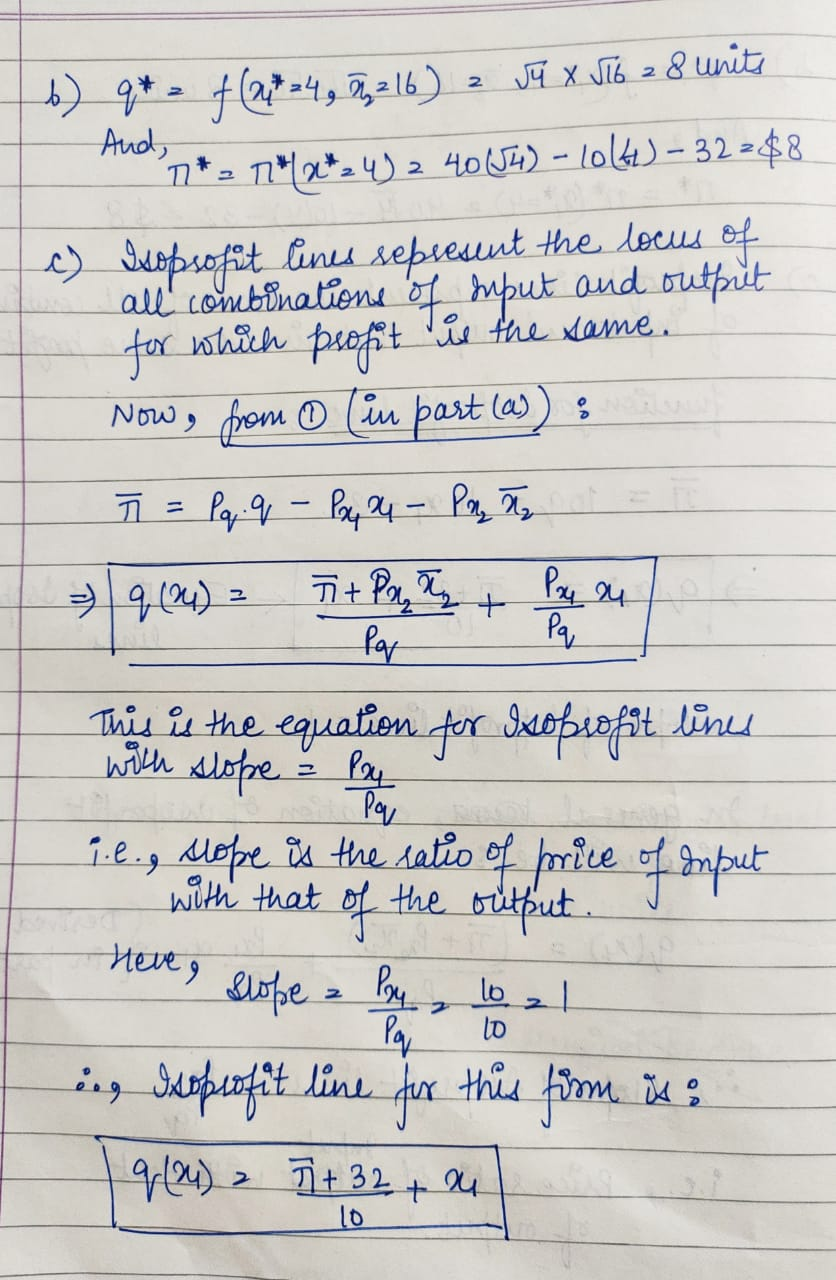 b) q* = f(x₁*=4, x̄₂=16) = √4 × √16 = 8 units
And,
π* = π*(x*=4) = 40(√4) – 10(4) – 32 = $8
c) Isoprofit lines represent the locus of
all combinations of Input and output
for which profit is the same.
Now, from ① (in part (a)) :
π̄ = Pq.q – Px₁ x₁ – Px₂ x̄₂
⇒ q(x₁) = (π̄ + Px₂ x̄₂)/Pq + (Px₁/Pq) x₁
This is the equation for Isoprofit lines
with slope = Px₁/Pq
i.e., slope is the ratio of price of Input
with that of the output.
Here,
slope = Px₁/Pq = 10/10 = 1
∴, Isoprofit line for this firm is :
q(x₁) = (π̄ + 32)/10 + x₁